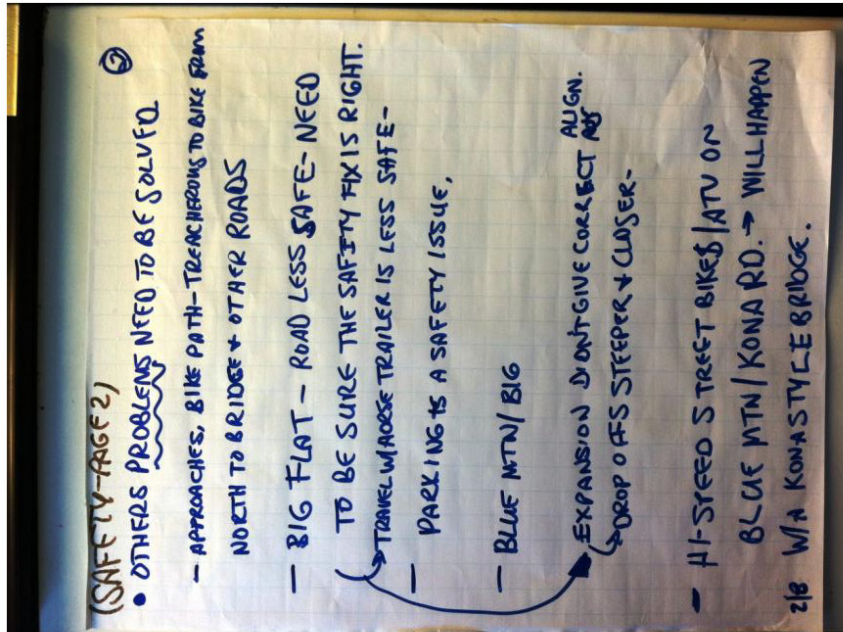 (SAFETY-PAGE 2)
②
• OTHERS PROBLEMS NEED TO BE SOLVED
- APPROACHES, BIKE PATH-TREACHEROUS TO BIKE FROM
NORTH TO BRIDGE + OTHER ROADS
- BIG FLAT - ROAD LESS SAFE-NEED
TO BE SURE THE SAFITY FIX IS RIGHT.
TRAVEL W/HORSE TRAILER IS LESS SAFE-
- PARKING IS A SAFETY ISSUE.
- BLUE MTN/BIG
EXPANSION DIDN'T GIVE CORRECT ALIGN.
DROP OFFS STEEPER + CLOSER-
- HI-SPEED STREET BIKES/ATV ON
BLUE MTN/KONA RD. → WILL HAPPEN
W/A KONA STYLE BRIDGE.
2/8